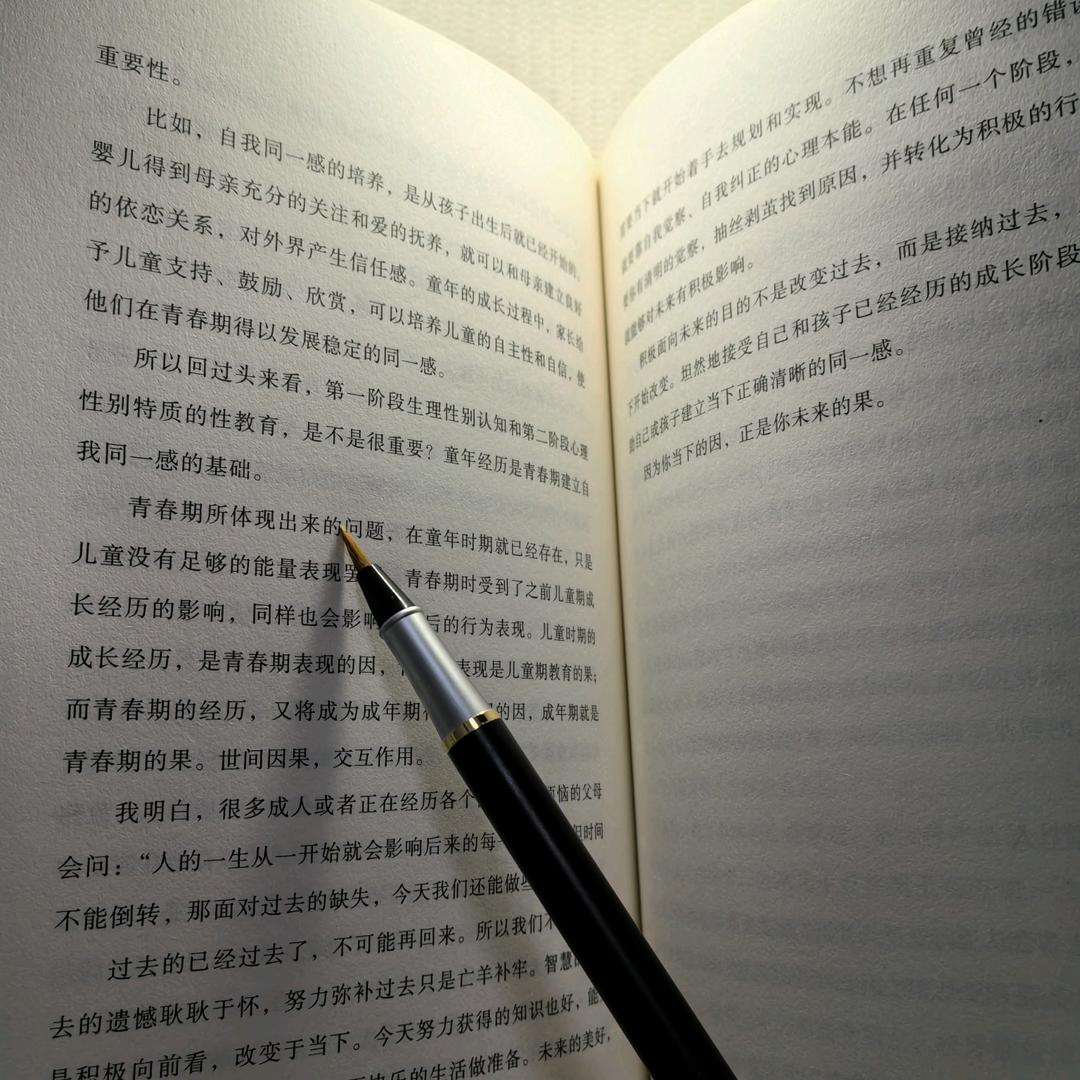 重要性。
比如，自我同一感的培养，是从孩子出生后就已经开始的。
婴儿得到母亲充分的关注和爱的抚养，就可以和母亲建立良好
的依恋关系，对外界产生信任感。童年的成长过程中，家长给
予儿童支持、鼓励、欣赏，可以培养儿童的自主性和自信，使
他们在青春期得以发展稳定的同一感。
所以回过头来看，第一阶段生理性别认知和第二阶段心理
性别特质的性教育，是不是很重要？童年经历是青春期建立自
我同一感的基础。
青春期所体现出来的问题，在童年时期就已经存在，只是
儿童没有足够的能量表现罢 青春期时受到了之前儿童期成
长经历的影响，同样也会影响 后的行为表现。儿童时期的
成长经历，是青春期表现的因， 表现是儿童期教育的果；
而青春期的经历，又将成为成年期 的因，成年期就是
青春期的果。世间因果，交互作用。
我明白，很多成人或者正在经历各个 烦恼的父母
会问：“人的一生从一开始就会影响后来的每一 但时间
不能倒转，那面对过去的缺失，今天我们还能做些
过去的已经过去了，不可能再回来。所以我们不
去的遗憾耿耿于怀，努力弥补过去只是亡羊补牢。智慧的
是积极向前看，改变于当下。今天努力获得的知识也好，能
快乐的生活做准备。未来的美好，
需要当下就开始着手去规划和实现。不想再重复曾经的错误
就要靠自我觉察、自我纠正的心理本能。在任何一个阶段，
要你有清明的觉察，抽丝剥茧找到原因，并转化为积极的行
就能够对未来有积极影响。
积极面向未来的目的不是改变过去，而是接纳过去，
下开始改变。坦然地接受自己和孩子已经经历的成长阶段
助自己或孩子建立当下正确清晰的同一感。
因为你当下的因，正是你未来的果。